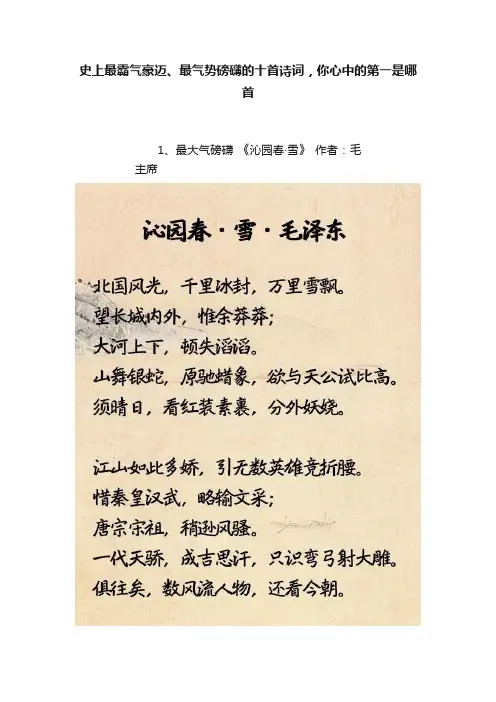 史上最霸气豪迈、最气势磅礴的十首诗词，你心中的第一是哪
首
1、最大气磅礴 《沁园春·雪》 作者：毛
主席
沁园春·雪·毛泽东
北国风光，千里冰封，万里雪飘。
望长城内外，惟余莽莽；
大河上下，顿失滔滔。
山舞银蛇，原驰蜡象，欲与天公试比高。
须晴日，看红装素裹，分外妖娆。
江山如此多娇，引无数英雄竞折腰。
惜秦皇汉武，略输文采；
唐宗宋祖，稍逊风骚。
一代天骄，成吉思汗，只识弯弓射大雕。
俱往矣，数风流人物，还看今朝。